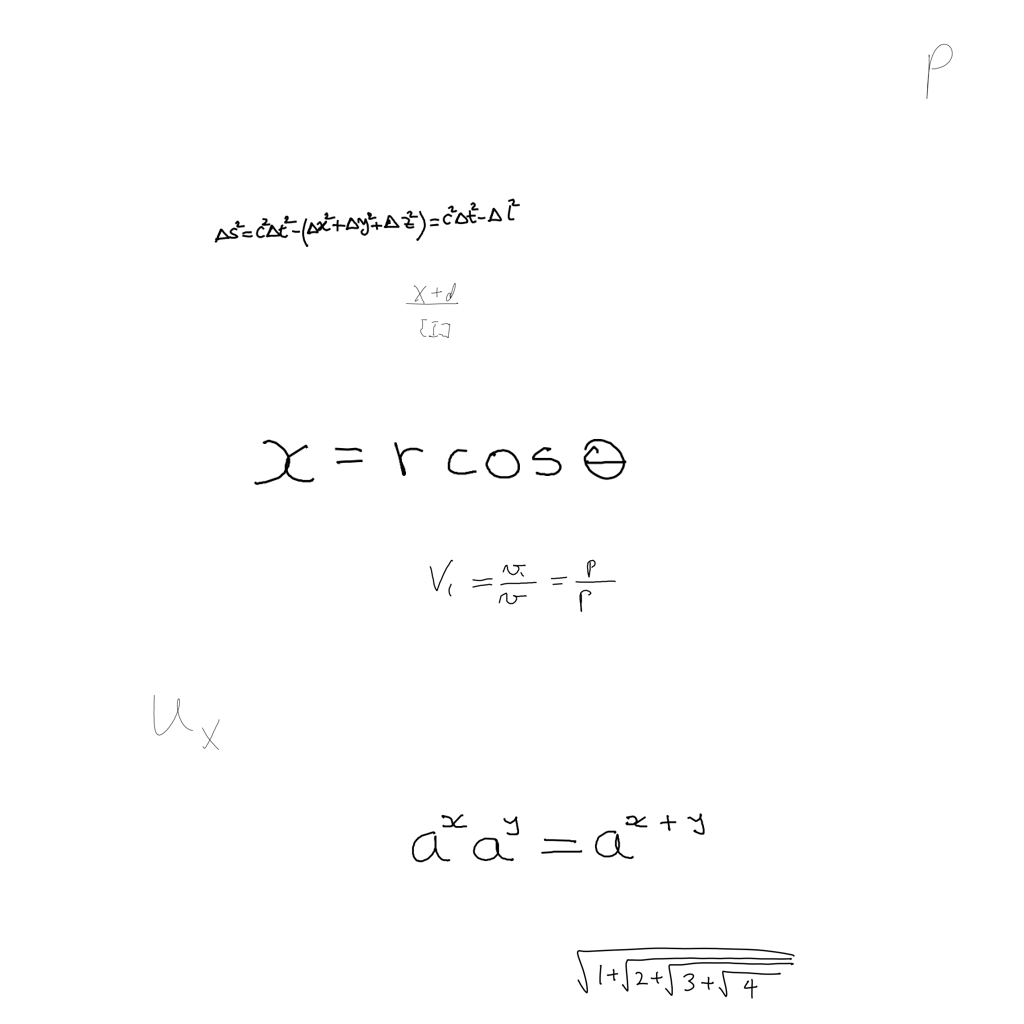 p
Δs²=c²Δt²-(Δx²+Δy²+Δz²)=c²Δt²-Δl²
\frac{x+d}{[I]}
x = r cos θ
V₁ = \frac{v₁}{v} = \frac{p}{p}
u_x
a^x a^y = a^{x+y}
\sqrt{1+\sqrt{2+\sqrt{3+\sqrt{4}}}}